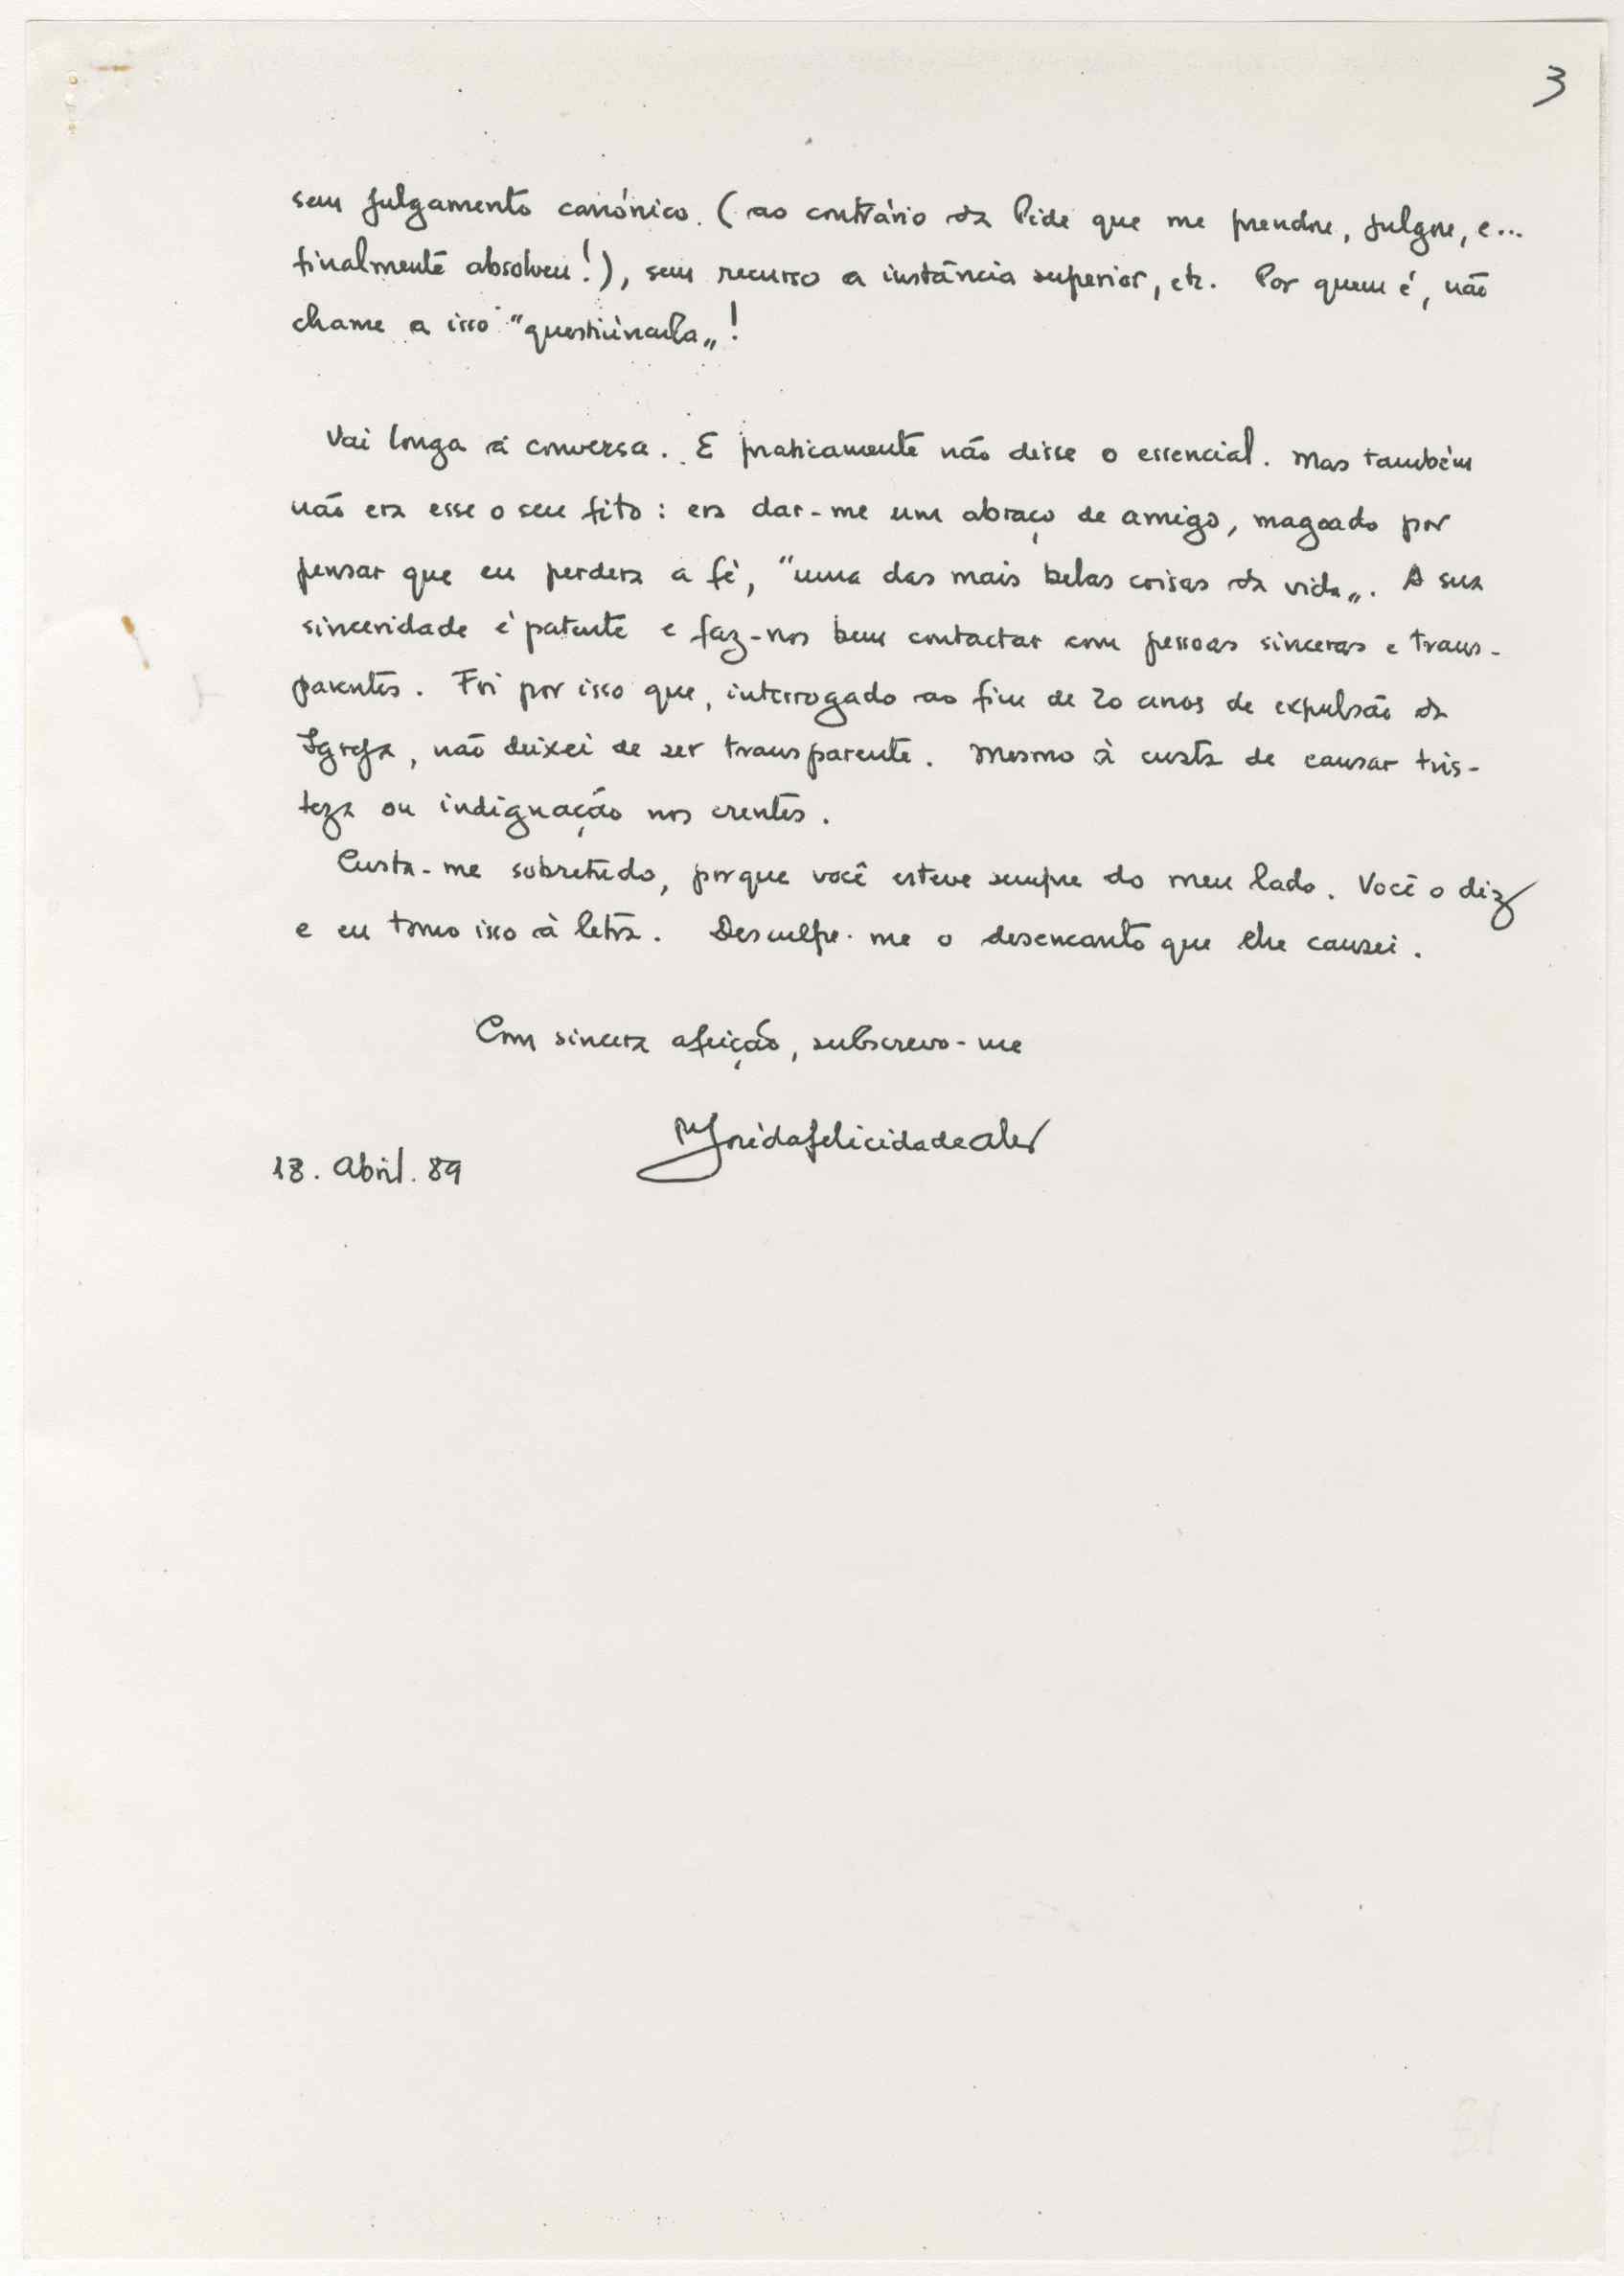 3
sem julgamento canónico. (ao contrário da Pide que me prendeu, julgou, e...
finalmente absolveu!), sem recurso a instância superior, etc. Por quem é, não
chame a isso "questiúncula„!
Vai longa a conversa. E praticamente não disse o essencial. Mas também
não era esse o seu fito: era dar-me um abraço de amigo, magoado por
pensar que eu perdera a fé, "uma das mais belas coisas da vida„. A sua
sinceridade é patente e faz-nos bem contactar com pessoas sinceras e trans-
parentes. Foi por isso que, interrogado ao fim de 20 anos de expulsão da
Igreja, não deixei de ser transparente. Mesmo à custa de causar tris-
teza ou indignação nos crentes.
Custa-me sobretudo, porque você esteve sempre do meu lado. Você o diz
e eu tomo isso à letra. Desculpe-me o desencanto que lhe causei.
Com sincera afeição, subscrevo-me
José da Felicidade Alves
18. Abril. 89